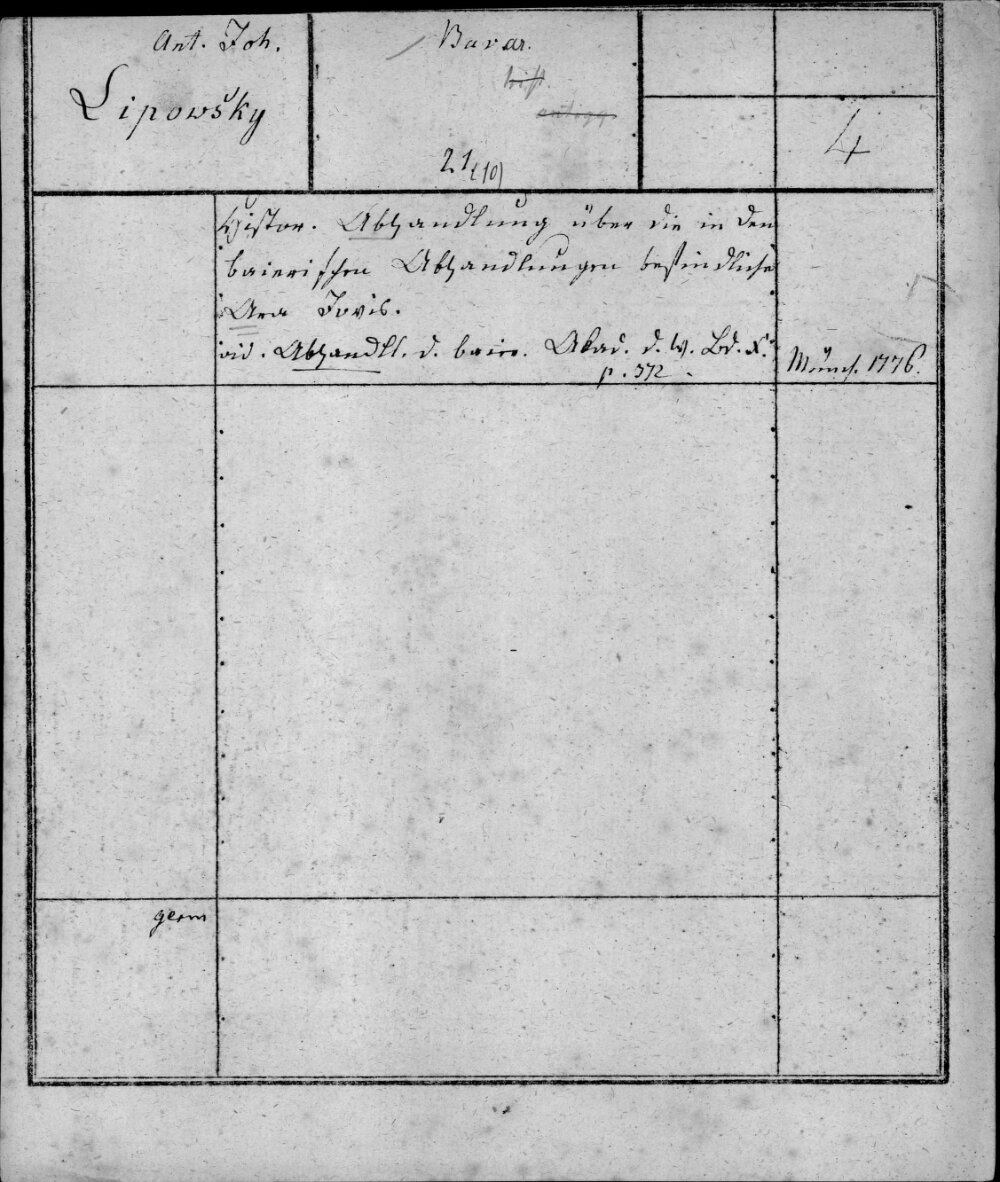 Ant. Joh.
Lipowsky
Bavar.
hist.
antiqq
21(10)
4
Histor. Abhandlung über die in den
baierischen Abhandlungen befindliche
Ara Jovis.
vid. Abhandl. d. baier. Akad. d. W. Bd. X.
p. 372.
Münch. 1776.
germ